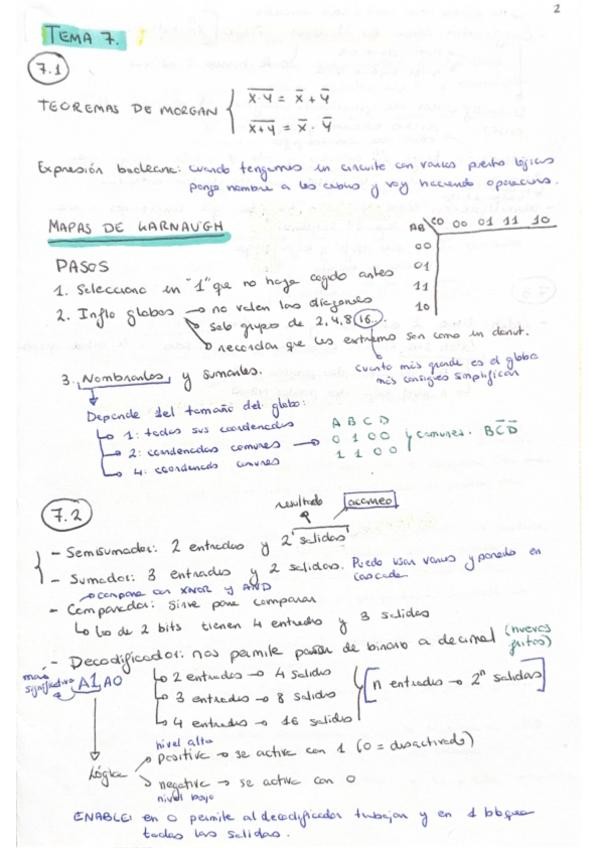 2
TEMA 7.
7.1
TEOREMAS DE MORGAN { X̅·̅Y̅ = X̅ + Y̅
X̅+̅Y̅ = X̅ · Y̅
Expresión booleana: cuando tengamos un circuito con varias puertas lógicas
pongo nombre a los cables y voy haciendo operacions.
MAPAS DE KARNAUGH
AB\CD 00 01 11 10
00
01
11
10
PASOS
1. Selecciono un "1" que no haya cogido antes
2. Inflo globos → no valen las diagonales
→ solo grupos de 2, 4, 8, 16...
→ recordar que los extremos son como un donut.
Cuanto más grande es el globo
más consigues simplificar
3. Nombrarlos y sumarlos.
Depende del tamaño del globo:
→ 1: todas sus coordenadas
→ 2: coordenadas comunes →
→ 4: coordenadas comunes
A B C D
0 1 0 0
1 1 0 0
} comunes. BC̅D̅
7.2
resultado acarreo
- Semisumador: 2 entradas y 2 salidas
- Sumador: 3 entradas y 2 salidas. Puedo usar varios y ponerlo en
cascada
→ compara con XNOR y AND
- Comparador: sirve para comparar
↳ Los de 2 bits tienen 4 entradas y 3 salidas
- Decodificador: nos permite pasar de binario a decimal (nuevos
más
significativo A1 A0
→ 2 entradas → 4 salidas
→ 3 entradas → 8 salidas
→ 4 entradas → 16 salidas
[n entradas → 2ⁿ salidas]
Lógica
nivel alto
→ positiva → se activa con 1 (0 = desactivado)
→ negativa → se activa con 0
nivel bajo
ENABLE: en 0 permite al decodificador trabajar y en 1 bloquea
todas las salidas.